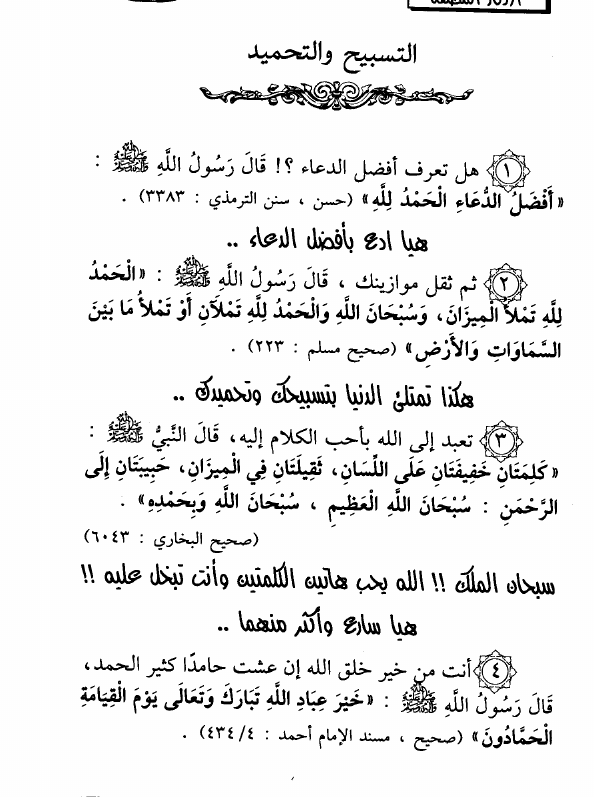 التسبيح والتحميد
١ هل تعرف أفضل الدعاء ؟! قَالَ رَسُولُ اللَّهِ ﷺ :
«أَفْضَلُ الدُّعَاءِ الْحَمْدُ لِلَّهِ» (حسن ، سنن الترمذي : ٣٣٨٣) .
هيا ادع بأفضل الدعاء ..
٢ ثم ثقل موازينك ، قَالَ رَسُولُ اللَّهِ ﷺ : «الْحَمْدُ
لِلَّهِ تَمْلَأُ الْمِيزَانَ، وَسُبْحَانَ اللَّهِ وَالْحَمْدُ لِلَّهِ تَمْلَآنِ أَوْ تَمْلَأُ مَا بَيْنَ
السَّمَاوَاتِ وَالْأَرْضِ» (صحيح مسلم : ٢٢٣) .
هكذا تمتلئ الدنيا بتسبيحك وتحميدك ..
٣ تعبد إلى الله بأحب الكلام إليه، قَالَ النَّبِيُّ ﷺ :
«كَلِمَتَانِ خَفِيفَتَانِ عَلَى اللِّسَانِ، ثَقِيلَتَانِ فِي الْمِيزَانِ، حَبِيبَتَانِ إِلَى
الرَّحْمَنِ : سُبْحَانَ اللَّهِ الْعَظِيمِ ، سُبْحَانَ اللَّهِ وَبِحَمْدِهِ» .
(صحيح البخاري : ٦٠٤٣)
سبحان الملك !! الله يحب هاتين الكلمتين وأنت تبخل عليه !!
هيا سارع وأكثر منهما ..
٤ أنت من خير خلق الله إن عشت حامدًا كثير الحمد،
قَالَ رَسُولُ اللَّهِ ﷺ : «خَيْرَ عِبَادِ اللَّهِ تَبَارَكَ وَتَعَالَى يَوْمَ الْقِيَامَةِ
الْحَمَّادُونَ» (صحيح ، مسند الإمام أحمد : ٤٣٤/٤) .